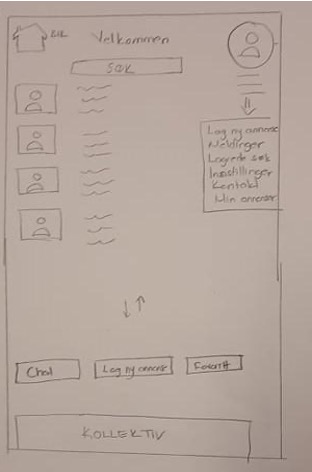 Velkommen
SØK
Lag ny annonse
Meldinger
Lagrede søk
Innstillinger
Kontakt
Min annonse
Chat
Lag ny annonse
Favoritt
KOLLEKTIV